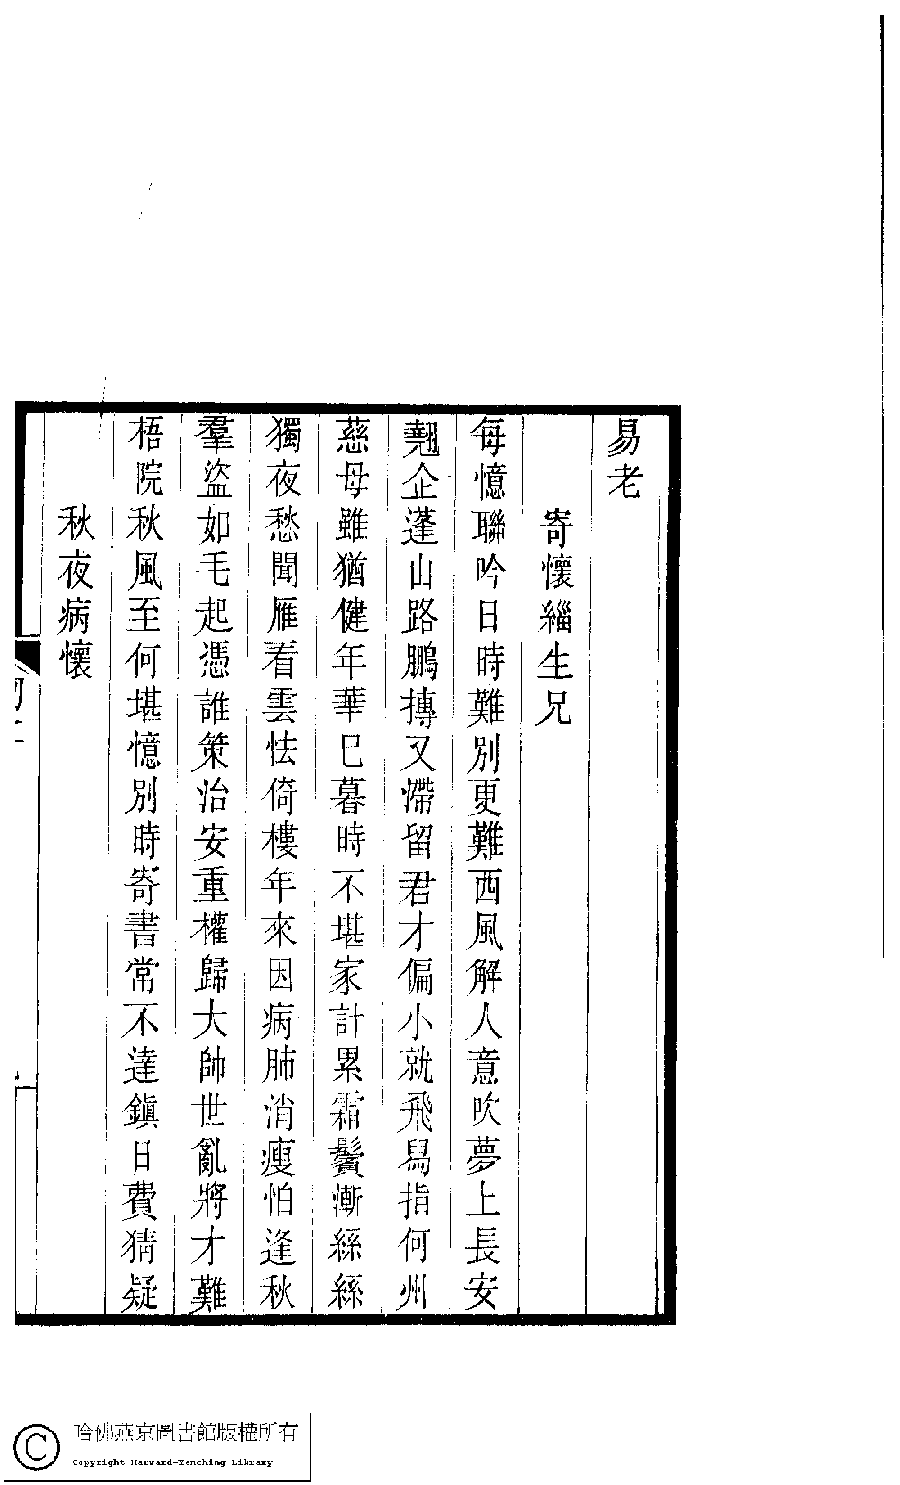 易老
寄懷緇生兄
每憶聯吟日時難別更難西風解人意吹夢上長安
翹企蓬山路鵬摶又滯留君才偏小就飛舄指何州
慈母雖猶健年華已暮時不堪家計累霜鬢漸絲絲
獨夜愁聞雁看雲怯倚樓年來因病肺消瘦怕逢秋
羣盜如毛起憑誰策治安重權歸大帥世亂將才難
梧院秋風至何堪憶別時寄書常不達鎮日費猜疑
秋夜病懷
哈佛燕京圖書館版權所有
Copyright Harvard-Yenching Library